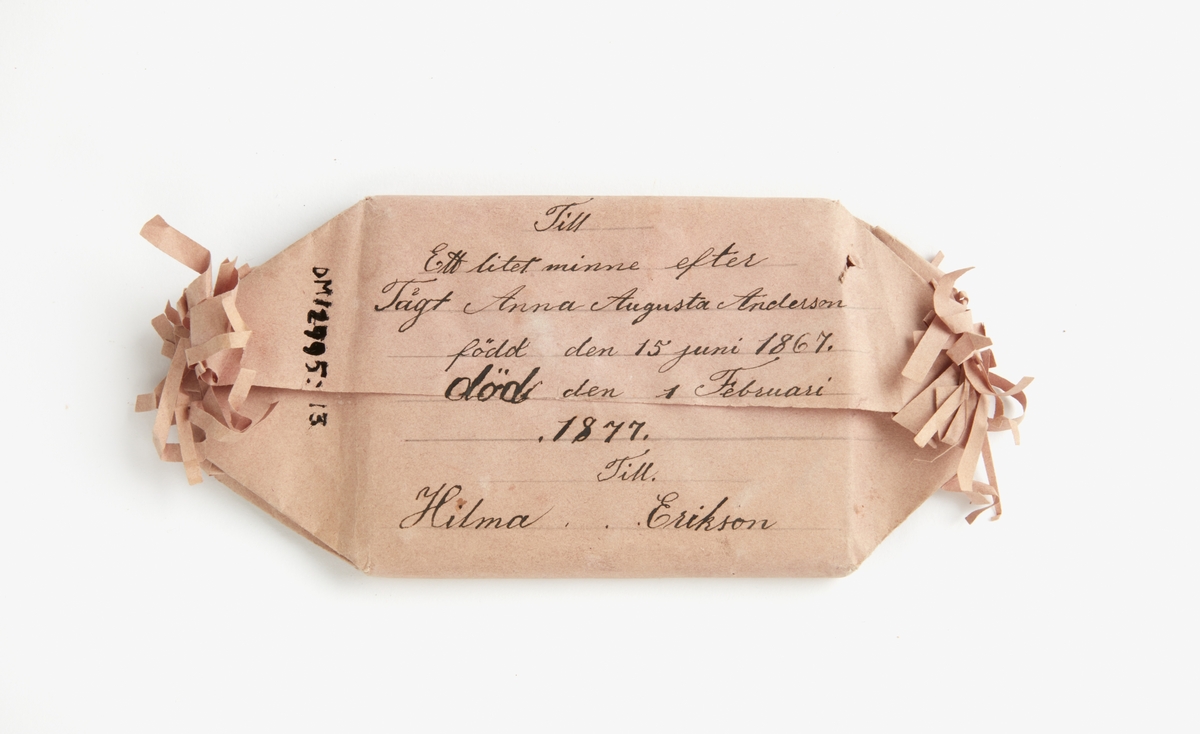 Till
Ett litet minne efter
Tågt Anna Augusta Anderson
född den 15 juni 1867.
död den 1 Februari
.1877.
Till.
Hilma . . . Erikson
DM12995:13